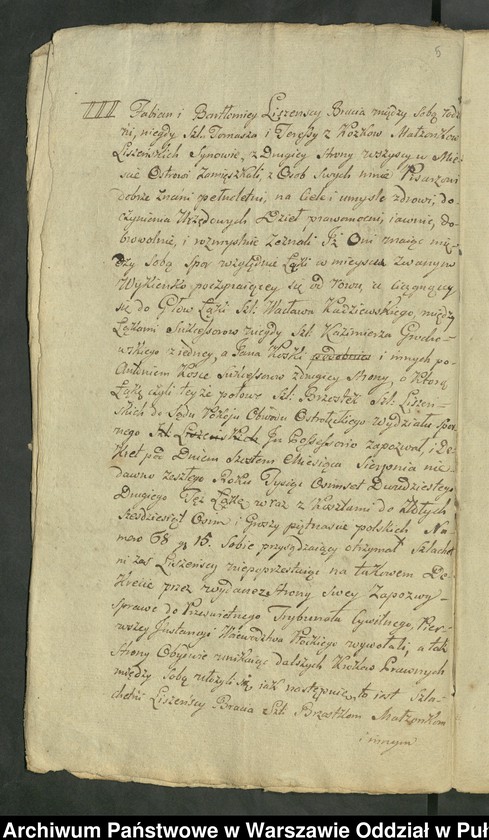 5
Fabian i Bartłomiey Liszenscy Bracia między Sobą rodz-
ni, niegdy Szl. Tomasza i Teressy z Kozków Małżonków
Liszeńskich Synowie, z Drugiey Strony wszyscy w Mie-
ście Ostrowi zamieszkali, z Osob Swych mnie Pisarzowi
dobrze znani pełnoletni, na Ciele i umysle zdrowi, do
czynienia Urzędowych Dzieł, prawomocni, iawnie, do-
browolnie, i rozmyslnie Zeznali Iż Oni maiąc mię-
dzy Sobą Spor względem Łąki w mieyscu Zwanym
poczynaiącey się od rowu, a ciągnącey
się do Głów Łąki Szl. Wacława Radziewskiego, między
Łąkami Sukcessorow niegdy Szl. Kazimierza
z iedney, a Jana Koski i innych po
Antonim Kosce Sukcessorow z drugiey Strony, o którą
Łąkę czyli teyże połowę Szl. Brzostek Szl. Liszen-
skich do Sądu Pokoju Obwodu Ostrołęckiego wydziału Spor-
nego In Possessorio zapozwał, i De-
kret pod Dniem Szostem Miesiąca Sierpnia nie-
dawno zeszłego Roku Tysiąc Osmset Dwudziestego
Drugiego Też Łąkę wraz z Kosztami do Złotych
Szesdziesiąt Osm i Groszy piętnascie polskich Nu-
mero 68 gr 15. Sobie przysądzaiący otrzymał Szlachet-
ni zaś Liszenscy niepoprzestaiąc na takowem De-
krecie przez wydany ze Strony Swey Zapozwy
Sprawę do Prześwietnego Trybunału Cywilnego, Pier-
wszey Instancyi Woiewództwa Płockiego wywołali, a tak
Strony Obydwie unikaiąc dalszych Krokow Prawnych
między Sobą ułożyli się, iak następuie, to iest Szla-
chetni Liszenscy Bracia Szl. Brzostkom Małżonkom
i innym
Archiwum Państwowe w Warszawie Oddział w Puł